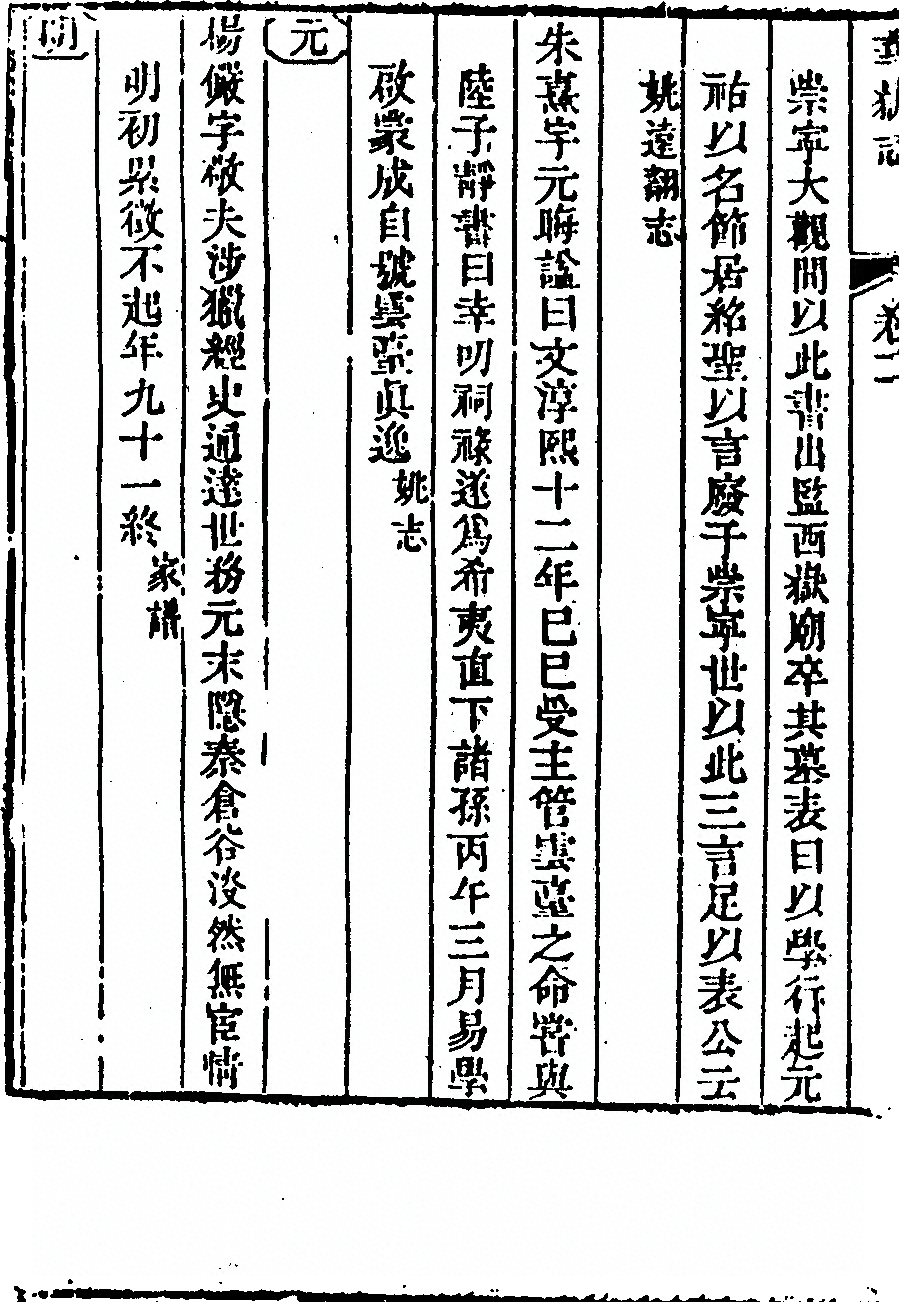 華嶽志 卷二
崇寧大觀間以此書出監西嶽廟卒其墓表曰以學行起元
祐以名節居紹聖以言廢于崇寧世以此三言足以表公云
姚遠翿志
朱熹字元晦諡曰文淳熙十二年巳巳受主管雲臺之命嘗與
陸子靜書曰幸叨祠祿遂爲希夷直下諸孫丙午三月易學
啟蒙成自號雲臺眞逸姚志
元
楊儼字敬夫涉獵經史通達世務元末隱秦倉谷淡然無宦情
明初累徵不起年九十一終家譜
明